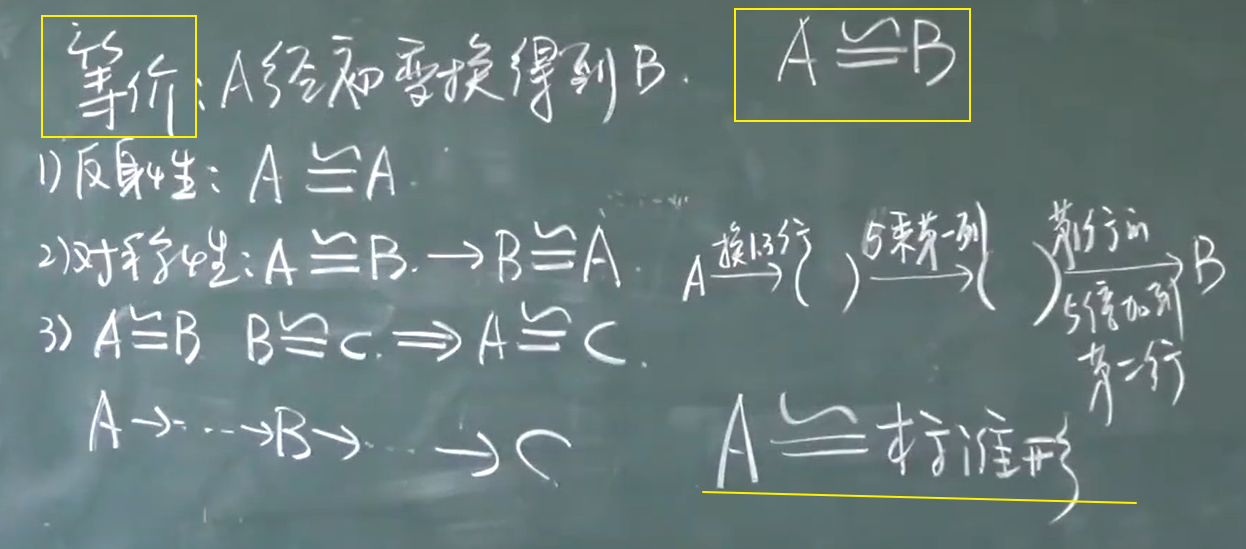 等价:A经初变换得到B. A≌B
1)反身性:A≌A.
2)对称性:A≌B.→B≌A.
3) A≌B B≌C.⇒A≌C.
A→…→B→…→C
A 换1.3行→( ) 5乘第一列→( ) 第1行的→B
5倍加到
第二行
A≌标准形